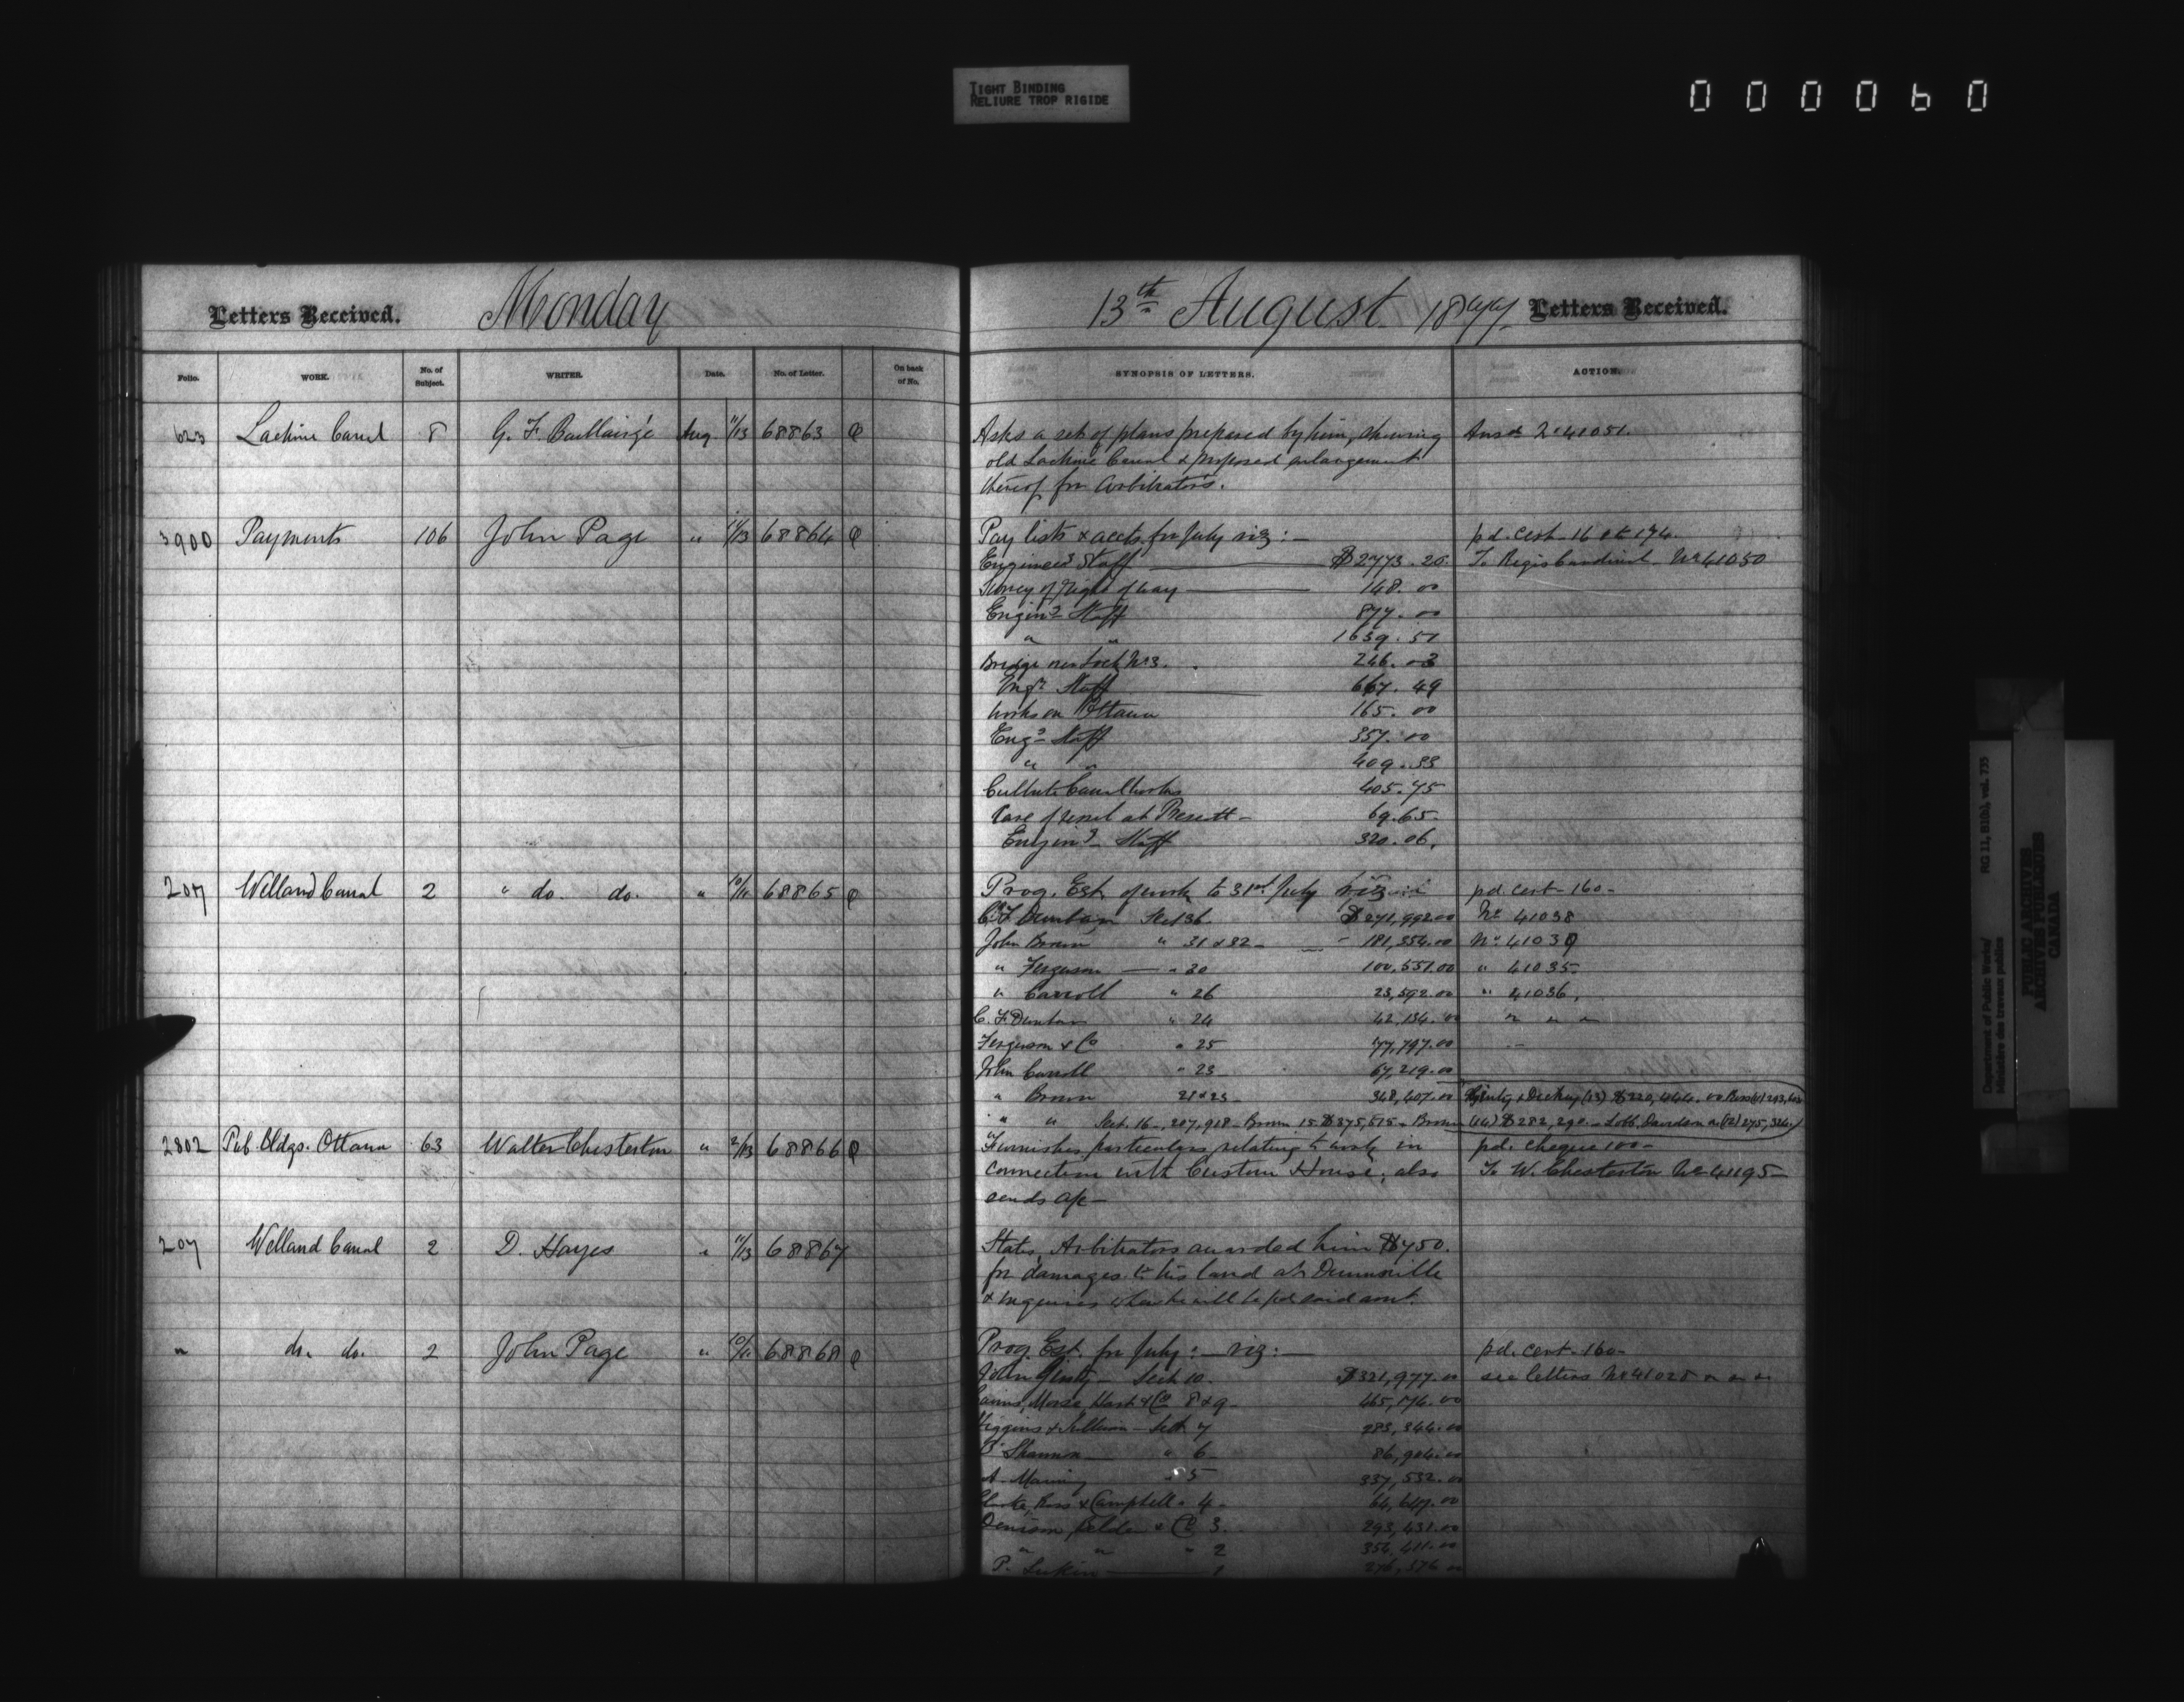 TIGHT BINDING
RELIURE TROP RIGIDE
000060
Letters Received. Monday
13th August 1877 Letters Received.
Folio. WORK. No. of Subject. WRITER. Date. No. of Letter. On back of No.
SYNOPSIS OF LETTERS. ACTION.
623 Lachine Canal 8 G. F. Baillairgé Aug 11/13 68863
Asks a set of plans prepared by him, showing Ansd 41051.
old Lachine Canal & proposed enlargement
thereof for Arbitrators.
3900 Payments 106 John Page " 11/13 68864
Pay lists & accts. for July viz:— pd. cert. 16 174.
Engineers Staff $2773.20 No 41050
Survey of Right of way 148.00
Engin. Staff 877.00
" " 1639.51
Bridge over Lock No 3. 246.03
Engr Staff 667.49
Works on Ottawa 165.00
Eng. Staff 357.00
" " 409.33
Culbute Canal works 405.75
Care of vessel at Prescott 69.65
Engin. Staff 320.06.
207 Welland Canal 2 " do. do. " 10/11 68865
Prog. Est. of work to 31st July viz pd. cert. 160-
C. F. Dunbar Sec 36. $271,992.00 No 41038
John Brown " 31 & 32 - 181,354.00 No 41039
" Ferguson " 30 100,551.00 " 41035
" Carroll " 26 23,592.00 " 41036.
C. F. Dunbar " 24 42,134.00 " " "
Ferguson & Co " 25 77,797.00
John Carroll " 23 67,219.00
" Brown 348,407.00 (13) $220,444.00
" " Sect. 16 207,918 - Brown 15 $375,515 - Brown (14) $282,290 - Lobb, Davidson (12) 275,324
2802 Pub. Bldgs. Ottawa 63 Walter Chesterton " 2/13 68866
Furnishes particulars relating to work in pd. cheque 100-
connection with Custom House, also To W. Chesterton No 41195
sends a/c
207 Welland Canal 2 D. Hayes " 11/13 68867
States Arbitrators awarded him $750.
for damages to his land at Dunnville
& inquires when he will be pd said amt.
" do. do. 2 John Page " 10/11 68868
Prog. Est. for July: viz:— pd. cert. 160-
John Ginty Sect 10. $321,977.00 see letters No 41028 " " "
Morse, Hart & Co 8 & 9 465,176.00
Higgins & Sullivan Sect 7 283,344.00
Shannon " 6 86,904.00
A. Manning " 5 337,532.00
Ross & Campbell " 4 64,647.00
Denison, Belden & Co 3. 293,431.00
" " " 2 354,411.00
P. Larkin 1 276,576.00
Department of Public Works/
Ministère des travaux publics
RG 11, B1(b), vol. 735
PUBLIC ARCHIVES
ARCHIVES PUBLIQUES
CANADA